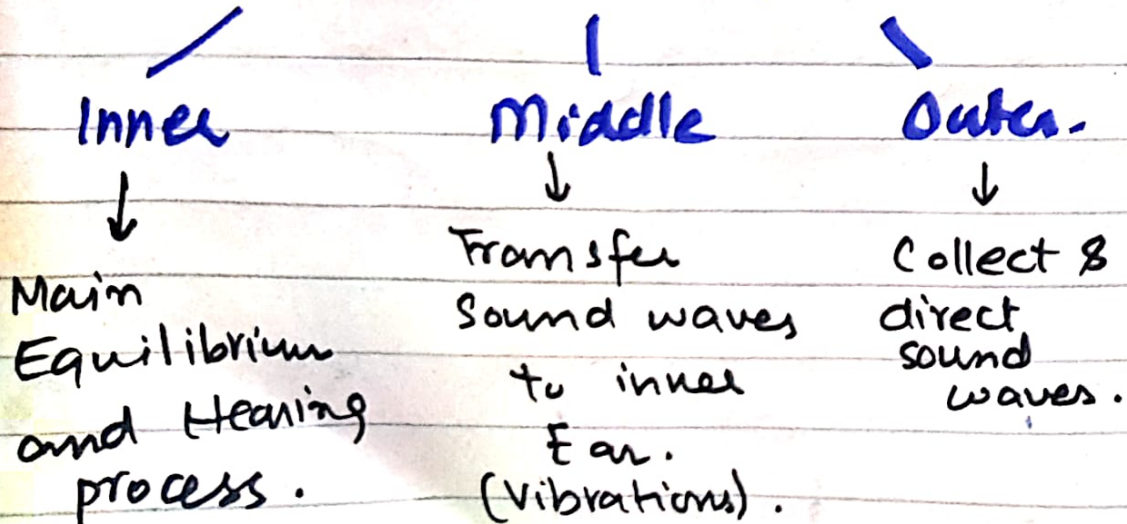 Inner
Main
Equilibrium
and Hearing
process.
Middle
Transfer
Sound waves
to inner
Ear.
(Vibrations).
Outer.
Collect &
direct
sound
waves.